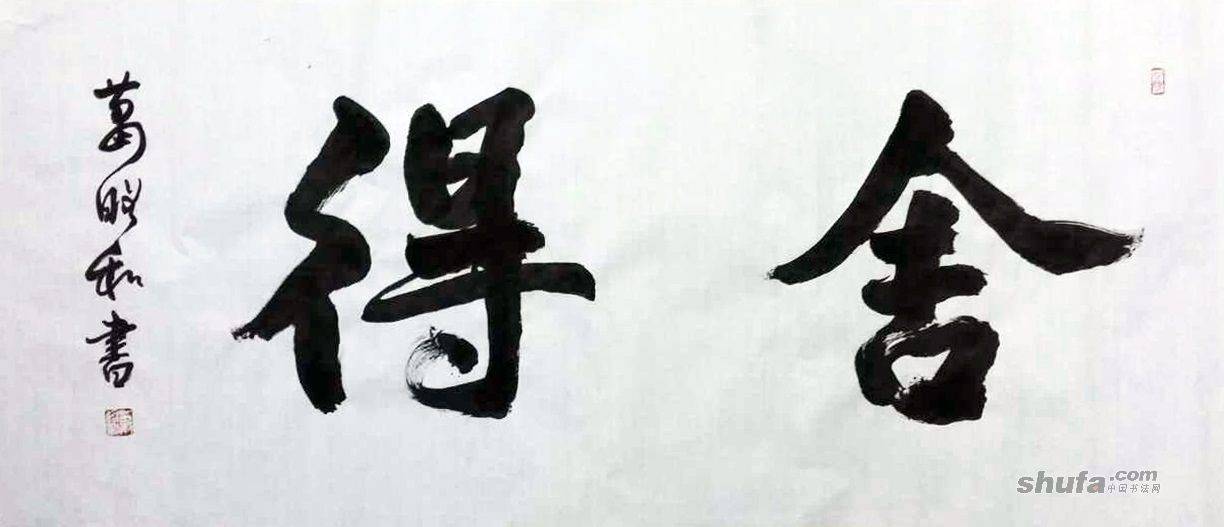 舍得
葛昭和書
shufa.com
中国书法网